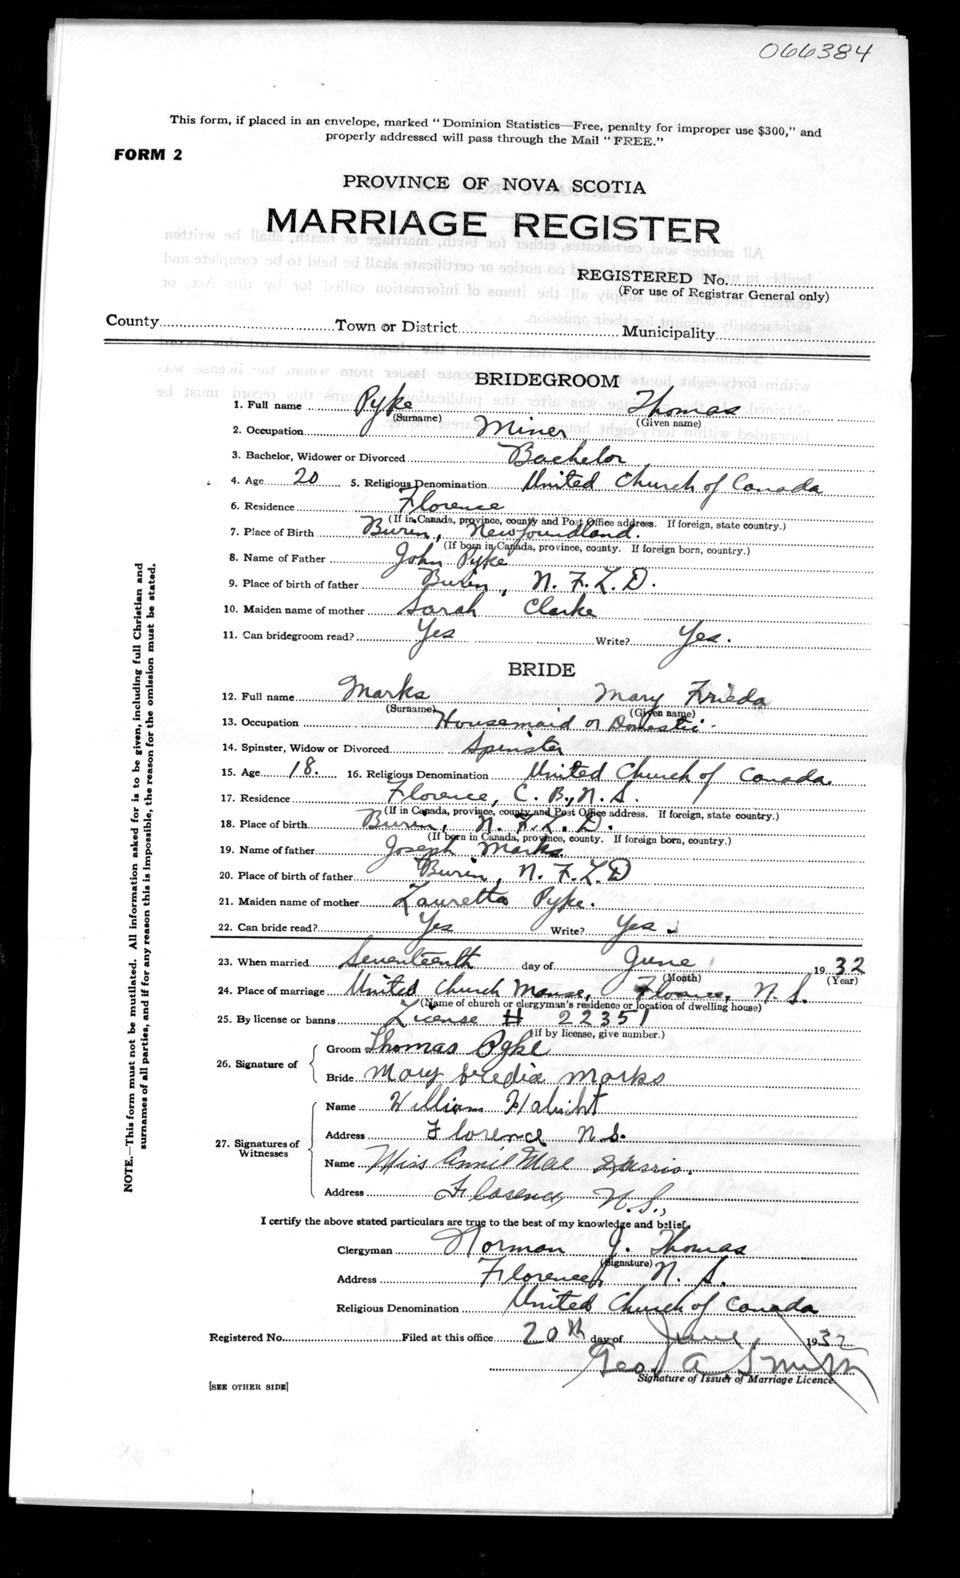 066384
This form, if placed in an envelope, marked "Dominion Statistics—Free, penalty for improper use $300," and
properly addressed will pass through the Mail "FREE."
FORM 2
PROVINCE OF NOVA SCOTIA
MARRIAGE REGISTER
REGISTERED No.
(For use of Registrar General only)
County Town or District Municipality
BRIDEGROOM
1. Full name Pyke Thomas
(Surname) (Given name)
2. Occupation Miner
3. Bachelor, Widower or Divorced Bachelor
4. Age 20 5. Religious Denomination United Church of Canada
6. Residence Florence
(If in Canada, province, county and Post Office address. If foreign, state country.)
7. Place of Birth Burin, Newfoundland.
(If born in Canada, province, county. If foreign born, country.)
8. Name of Father John Pyke
9. Place of birth of father Burin, N. F. L. D.
10. Maiden name of mother Sarah Clarke
11. Can bridegroom read? Yes Write? Yes.
BRIDE
12. Full name Marks Mary Frieda
(Surname) (Given name)
13. Occupation Housemaid or Domestic.
14. Spinster, Widow or Divorced Spinster
15. Age 18. 16. Religious Denomination United Church of Canada
17. Residence Florence, C. B., N. S.
(If in Canada, province, county and Post Office address. If foreign, state country.)
18. Place of birth Burin, N. F. L. D.
(If born in Canada, province, county. If foreign born, country.)
19. Name of father Joseph Marks
20. Place of birth of father Burin, N. F. L D
21. Maiden name of mother Lauretta Pyke.
22. Can bride read? Yes Write? Yes
23. When married Seventeenth day of June 1932
(Month) (Year)
24. Place of marriage United Church Manse, Florence, N. S.
(Name of church or clergyman's residence or location of dwelling house)
25. By license or banns License # 22351
(If by license, give number.)
26. Signature of
Groom Thomas Pyke
Bride Mary Marks
27. Signatures of
Witnesses
Name William
Address Florence N.S.
Name Miss Annie Mae
Address Florence, N.S.,
I certify the above stated particulars are true to the best of my knowledge and belief.
Clergyman Norman J. Thomas
(Signature)
Address Florence, N. S.
Religious Denomination United Church of Canada
Registered No. Filed at this office 20th day of June 1932
Geo A Smith
Signature of Issuer of Marriage Licence
[SEE OTHER SIDE]
NOTE.—This form must not be mutilated. All information asked for is to be given, including full Christian and
surnames of all parties, and if for any reason this is impossible, the reason for the omission must be stated.